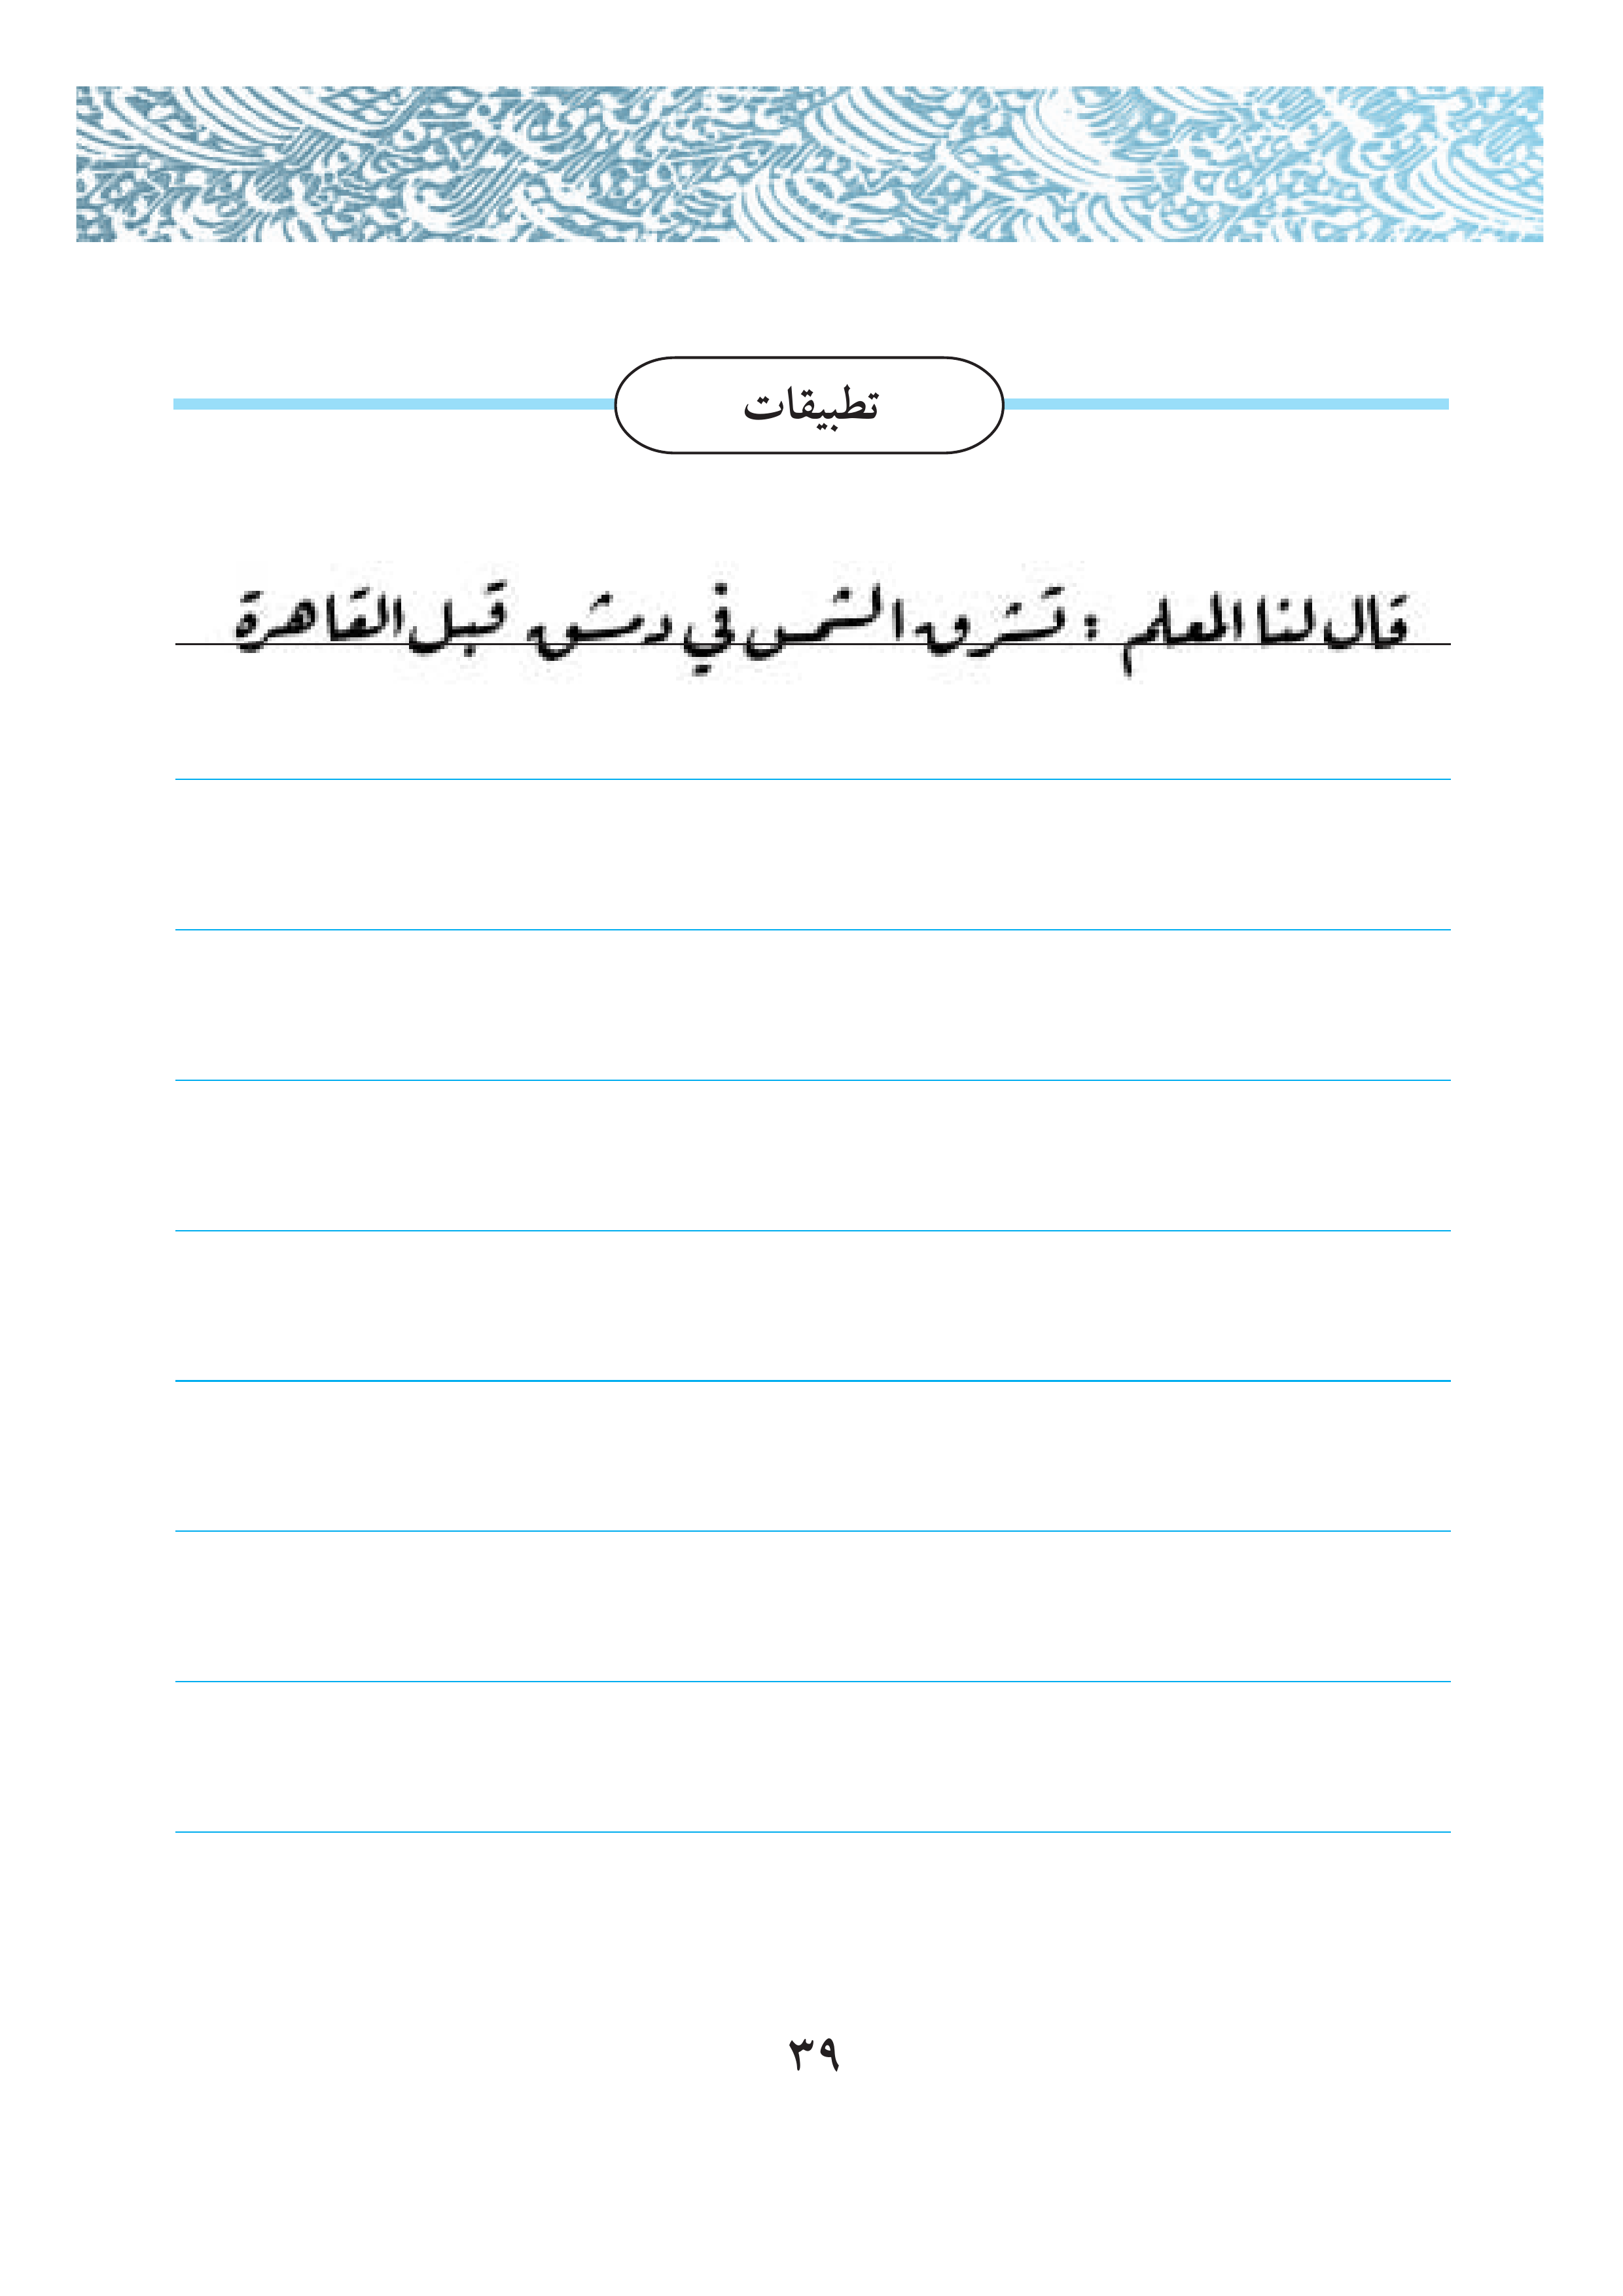 تطبيقات
قال لنا المعلم : تشرق الشمس في دمشق قبل القاهرة
٣٩